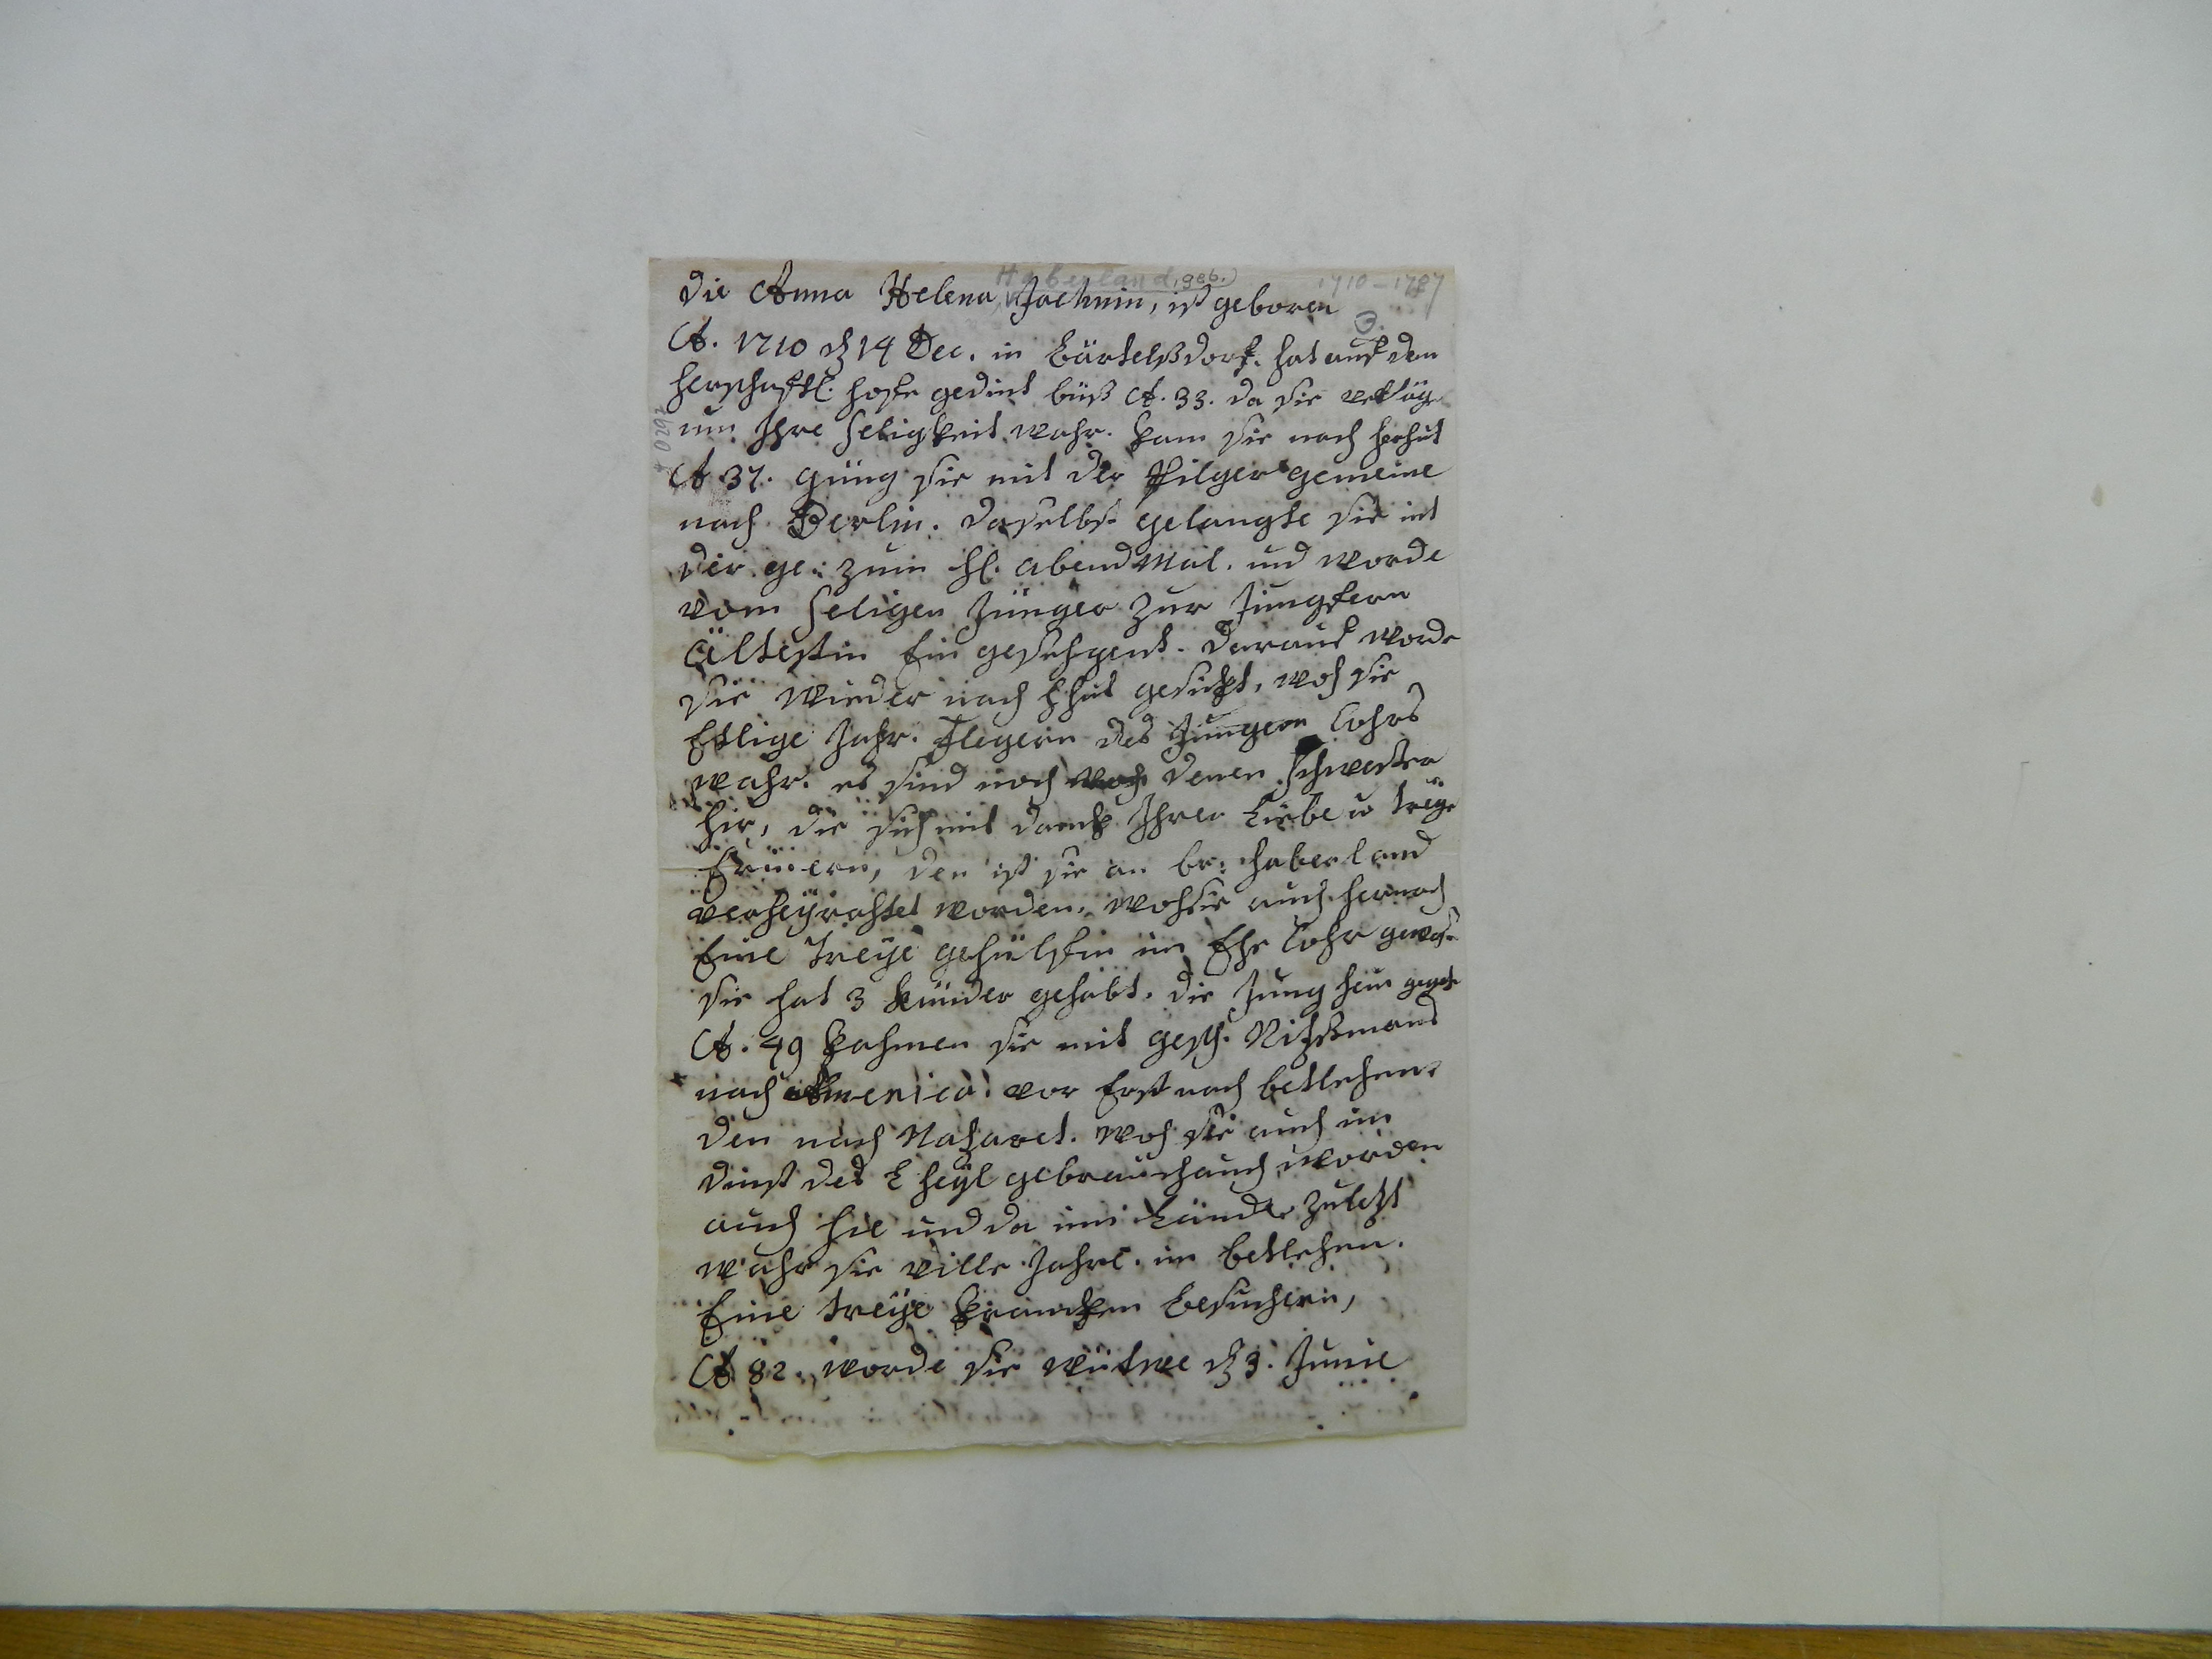 Haberland, geb.) 1710-1787
die Anna Helena, Jachmin, ist geboren
3.
A. 1710 d 14 Dec. in Bärtelßdorf. hat auf den
herschaftl. hofe gedint büß A. 33. da sie verlägen
um Ihre Seligkeit wahr. kam sie nach herhut
A 37. güng sie mit der Pilger gemeine
nach Berlin. daselbst gelangte sie mit
der ge: zum hl. abend Mal. und worde
vom Seligen Jünger zur Jungfern
Ältestin Ein gesehgent. darauf worde
sie wieder nach hhut geschikt, woh sie
Etlige Jahr. Flegerin des Jungern Cohrs
wahr. es sind noch von denen Schwestern
hir, die sich mit danck Ihrer Liebe u treye
Erinern, den ist sie an br: haberland
verheyrahtet worden, wohsie auch hernach
Eine Treye gehülfin im Ehe Cohr gewesen
sie hat 3 künder gehabt. die Jung heim gegangen
A. 49 kahmen sie mit gesch. Nitzschmans
nach America. vor Erst nach betlehem.
den nach Nazaret. woh sie auch im
dinst des heyl gebrauch auch worden
auch hie und da im Lande. zuletzt
wahr sie ville Jahre. in betlehem.
Eine treye krancken besuchern,
A 82. worde sie wütwe d 3. Junie